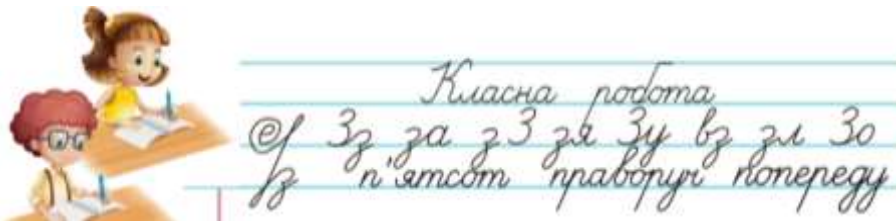 Класна робота
Зз за з З зя Зу вз зл Зо
з п'ятсот праворуч попереду